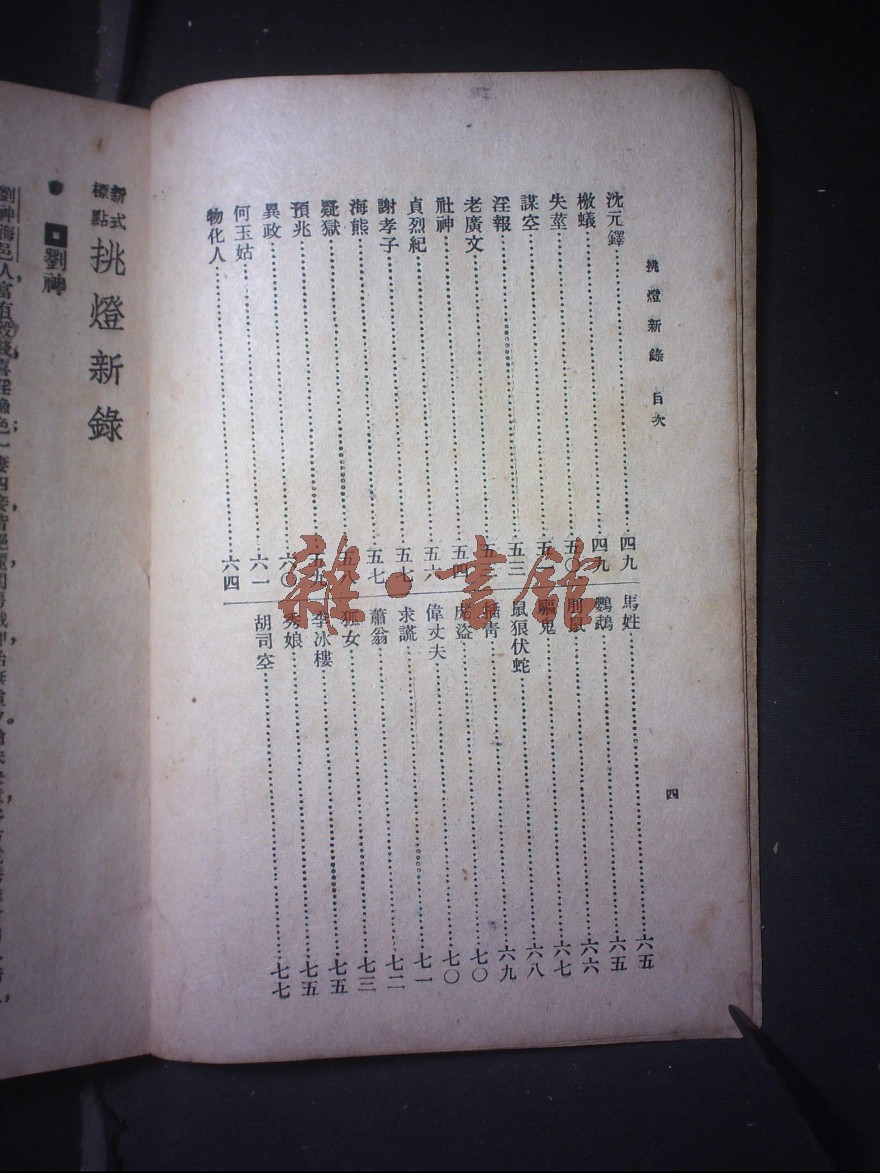 挑燈新錄 目次
四
沈元鐸 四九
檄蟻 四九
失莖 五〇
謀空 五一
淫報 五三
老廣文 五三
社神 五四
貞烈紀 五六
謝孝子 五七
海熊 五七
疑獄 五八
預兆 五九
異政 六〇
何玉姑 六一
物化人 六四
馬姓 六五
鸚鵡 六五
六六
驅鬼 六七
鼠狼伏蛇 六八
青 六九
虎盜 七〇
偉丈夫 七〇
求謊 七一
蕭翁 七二
狐女 七三
李冰樓 七五
秀娘 七五
胡司空 七七
雜·書館
新式標點 挑燈新錄
劉神
劉神海邑人，富有